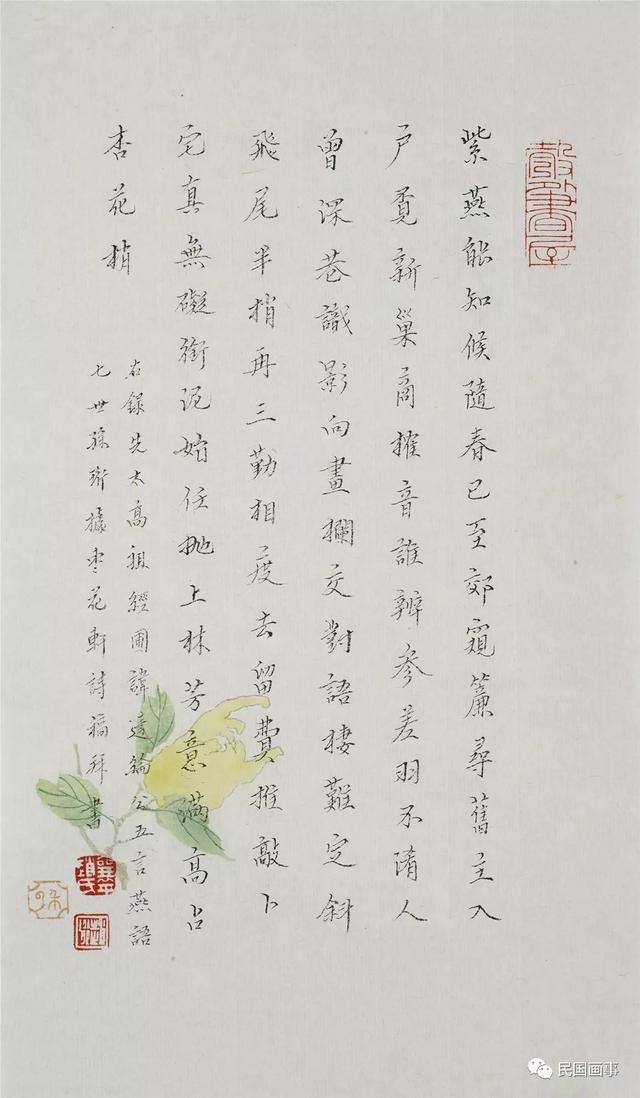 紫燕能知候隨春已至郊窺簾尋舊主入
戶覓新巢商搉音誰辨參差羽不淆人
曾深巷識影向畫欄交對語棲難定斜
飛尾半捎再三勤相度去留費推敲卜
宅真無礙銜泥始任拋上林芳意滿高占
杏花梢
右錄先太高祖經圃諱遠綸公五言燕語
七世孫珩據棗花軒詩稿拜書
民国画事